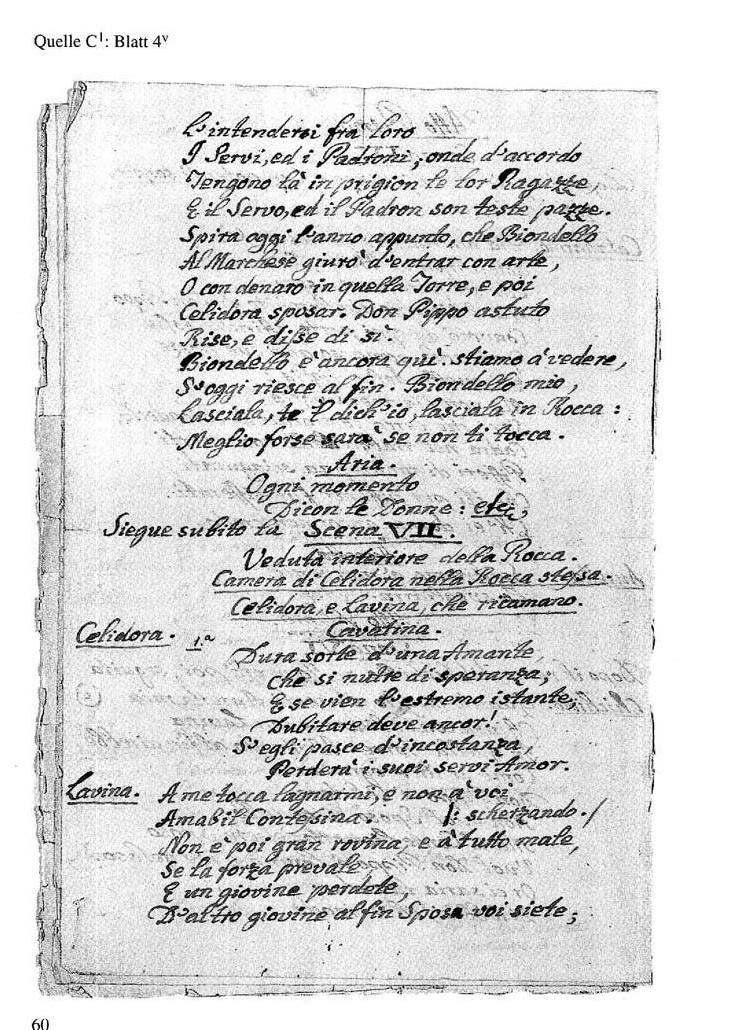 Quelle C¹: Blatt 4ᵛ
L'intendersi frà loro
I Servi, ed i Padroni; onde d'accordo
Tengono là in prigion le lor Ragazze,
E il Servo, ed il Padron son teste pazze.
Spira oggi l'anno appunto, che Biondello
Al Marchese giurò d'entrar con arte,
O con denaro in quella Torre, e poi
Celidora sposar. Don Pippo astuto
Rise, e disse di sì.
Biondello è ancora quì. stiamo à vedere,
S'oggi riesce al fin. Biondello mio,
Lasciala, te il dich'io, lasciala in Rocca:
Meglio forse sarà se non ti tocca.
Aria.
Ogni momento
Dicon le Donne: etc,
Siegue subito la Scena VII.
Veduta interiore della Rocca.
Camera di Celidora nella Rocca stessa.
Celidora, e Lavina, che ricamano.
Cavatina.
Celidora. 1.ª
Dura sorte d'una Amante
Che si nutre di speranza;
E se vien l'estremo istante,
Dubitare deve ancor!
S'egli pasce d'incostanza,
Perderà i suoi servi Amor.
Lavina. A me tocca lagnarmi, e non à voi
Amabil Contesina. /: scherzando. /
Non è poi gran rovina, e à tutto male,
Se la forza prevale,
E un giovine perdete,
D'altro giovine al fin Sposa voi siete;
60